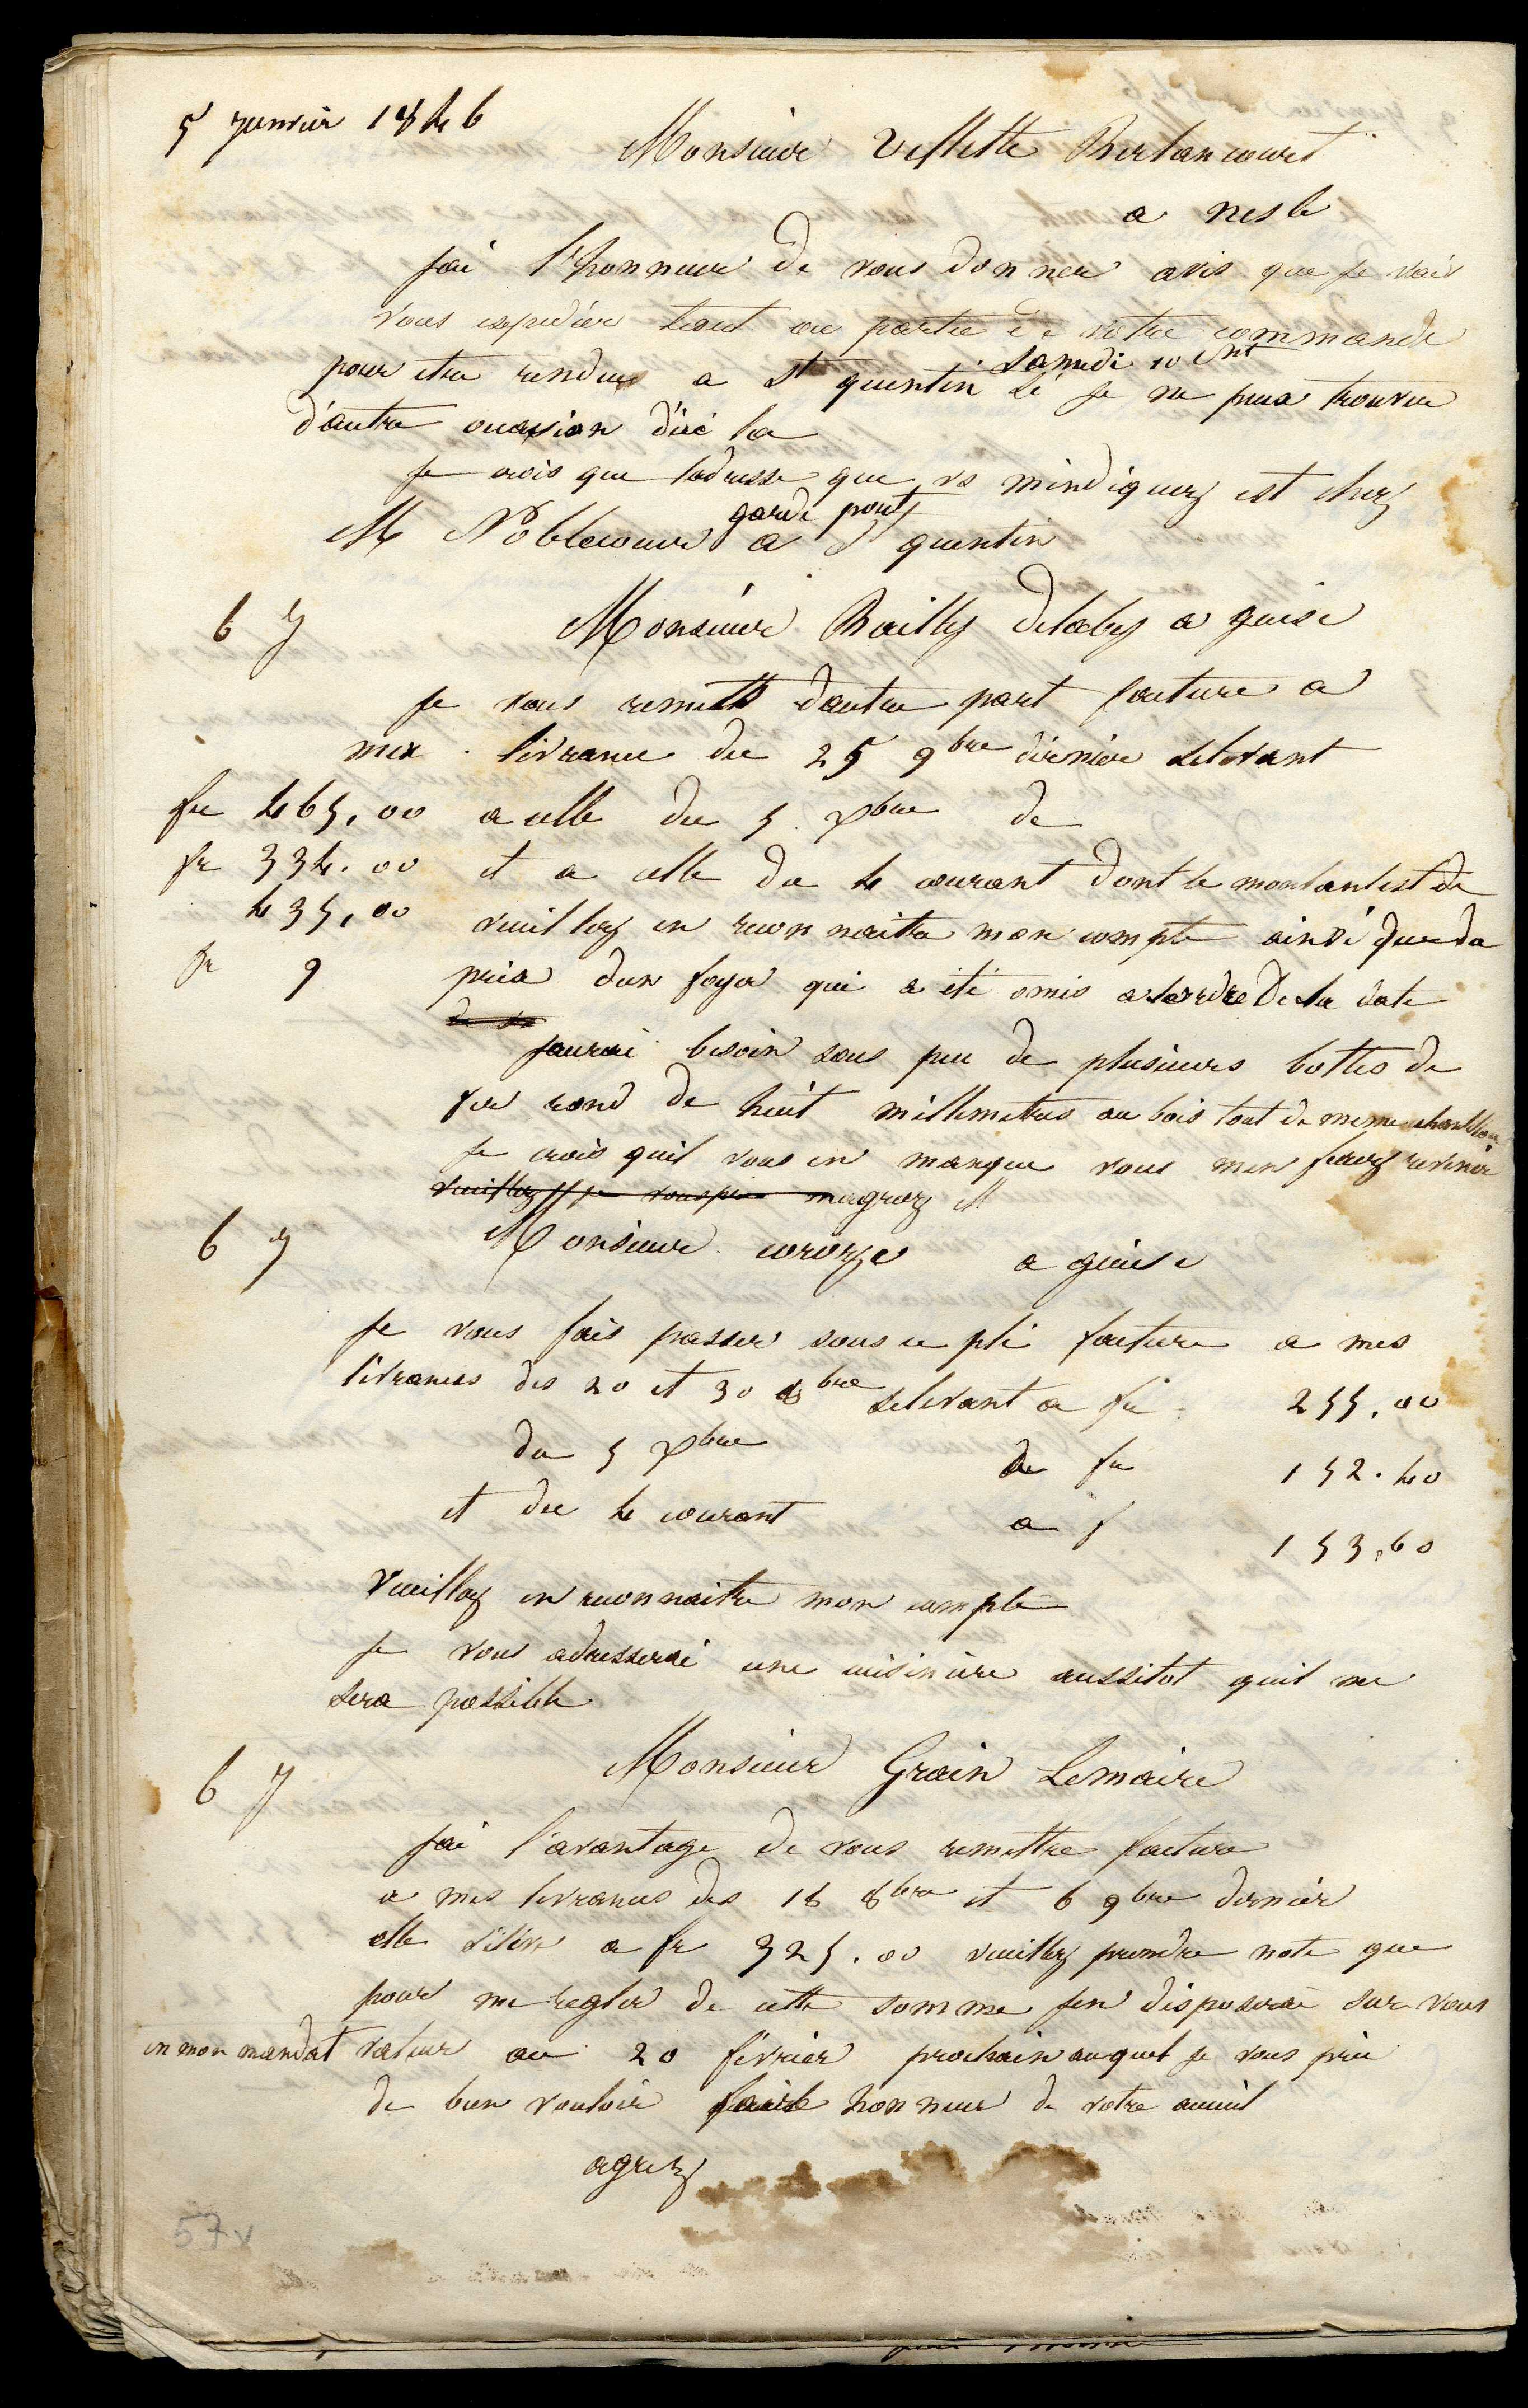 5 janvier 1846
Monsieur Vellette Berlancourt
a nesle
jai l'honneur de vous donner avis que je vais
vous expedier tout ou partie de votre commande
pour etre rendue a St quentin samedi 10 cnt si je ne peux trouver
d'autre occasion d'ici la
je crois que ladresse que vs mindiquez est chez
M Noblecourt garde pont a St quentin
6 J Monsieur Bailly Delaby a guise
je vous remets dautre part facture a
mea livrance du 25 9bre dernier selevant
fr 465,00 a celle du 5 xbre de
fr 334.00 et a celle du 4 courant dont le montant est de
435,00 veuillez en reconnaitre mon compte ainsi que du
fr 9 prix dun foyer qui a été omis a lordre de la date
de la
jaurai besoin sous peu de plusieurs bottes de
fer rond de huit millimetres au bois tout de meme echantillon
je crois quil vous en manque vous men ferez revenir
veuillez je vous prie magreez M
6 J Monsieur cororge a guise
je vous fais passer sous ce pli facture a mes
livrances des 20 et 30 8bre selevant a fr 255,00
du 5 xbre de fr 152.40
et du 4 courant a f 153,60
Veuillez en reconnaitre mon compte
je vous adresserai une cuisinière aussitot quil me
sera possible
6 J Monsieur Grain Lemaire
jai l'avantage de vous remettre facture
a mes livrances des 18 8bre et 6 9bre dernier
elle s'élève a fr 325.00 veuillez prendre note que
pour me regler de cette somme jen disposerai sur vous
en mon mandat valeur au 20 février prochain auquel je vous prie
de bien vouloir faire honneur de votre acceuil
agreez
57v